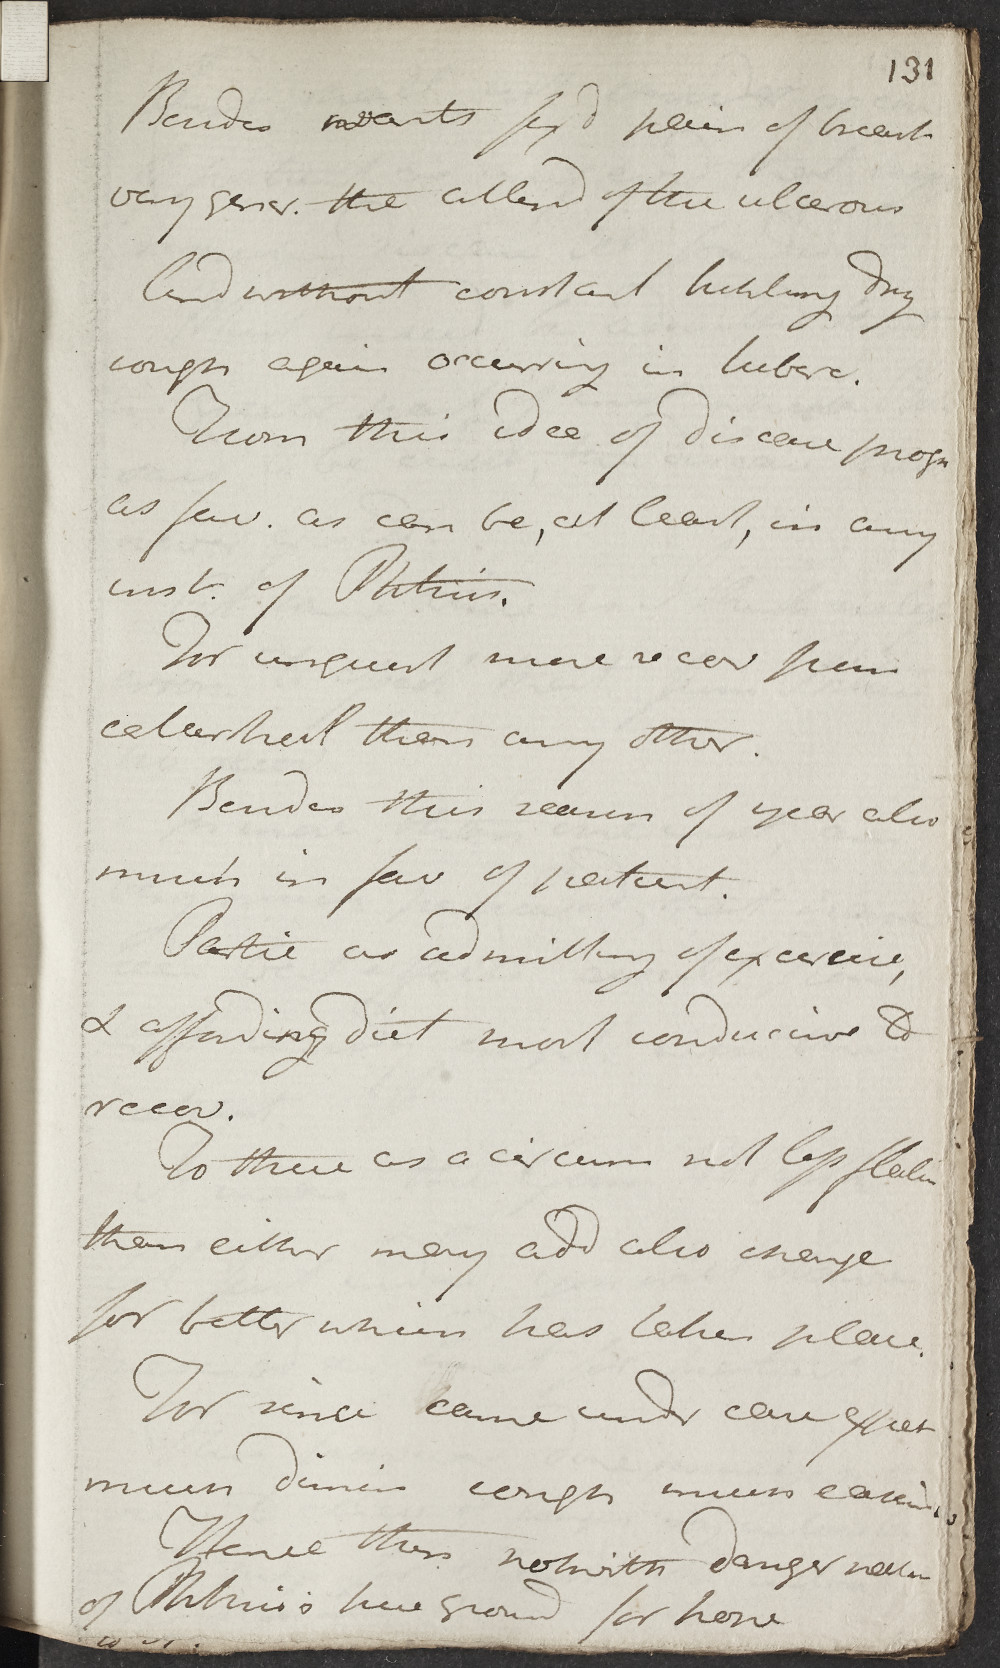 131
Besides wants fix'd pain of breast
very gener. the attend of the ulcerous
And without constant tickling dry
cough again occurring in tuberc.
From this idea of disease progn
as fav. as can be, at least, in any
inst. of Phthisis.
For unquest more recov from
catarrhal than any other.
Besides this season of year also
much in fav of patient.
Partic as admitting of exercise,
& affording diet most conducive to
recov.
To these as a circum not less
than either may add also change
for better which has taken place.
For since came under care expect
much dimin cough much
Hence then notwith danger
of Phthisis have ground for hope